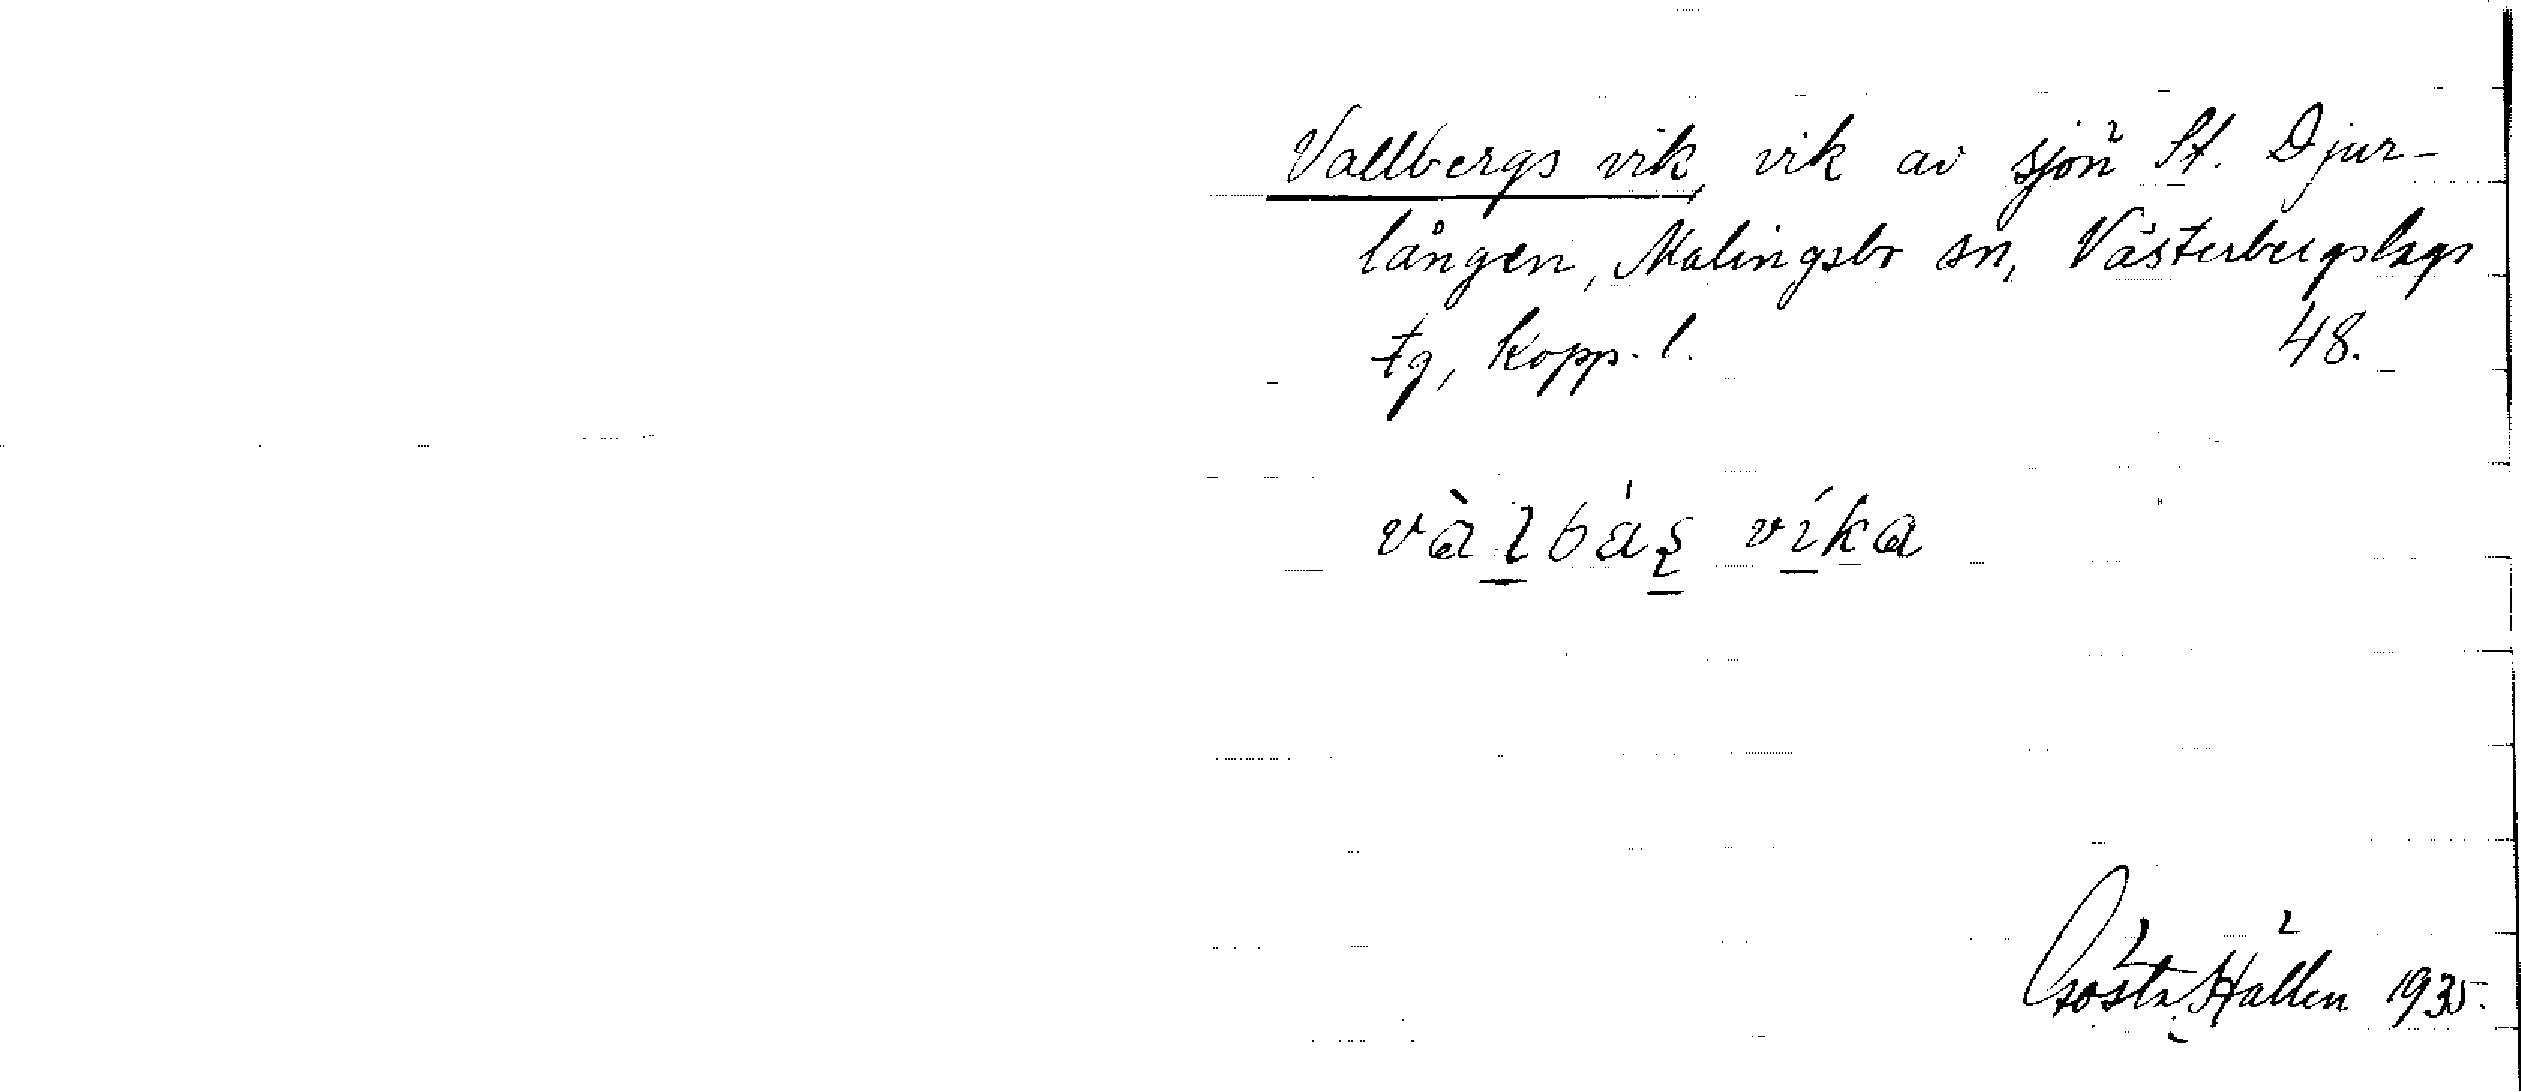 Vallbergs vik, vik av sjön St. Djur-
lången, Malingsbo sn, Västerbergslags
tg, Kopp. l. 48.
vàlbáʂ víka
Gösta Hällen 1935.